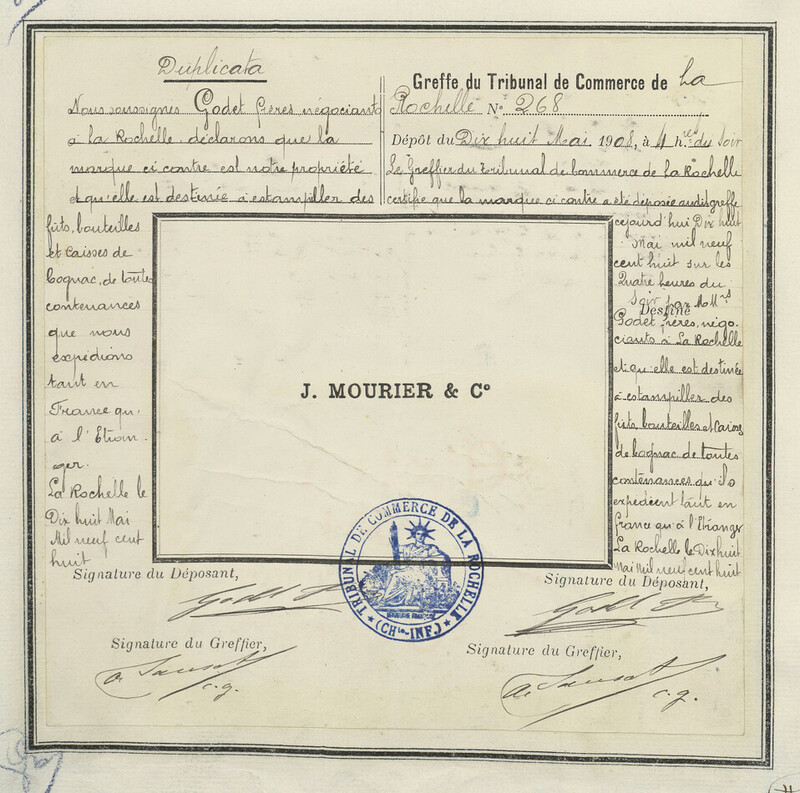 Duplicata
Nous soussignés Godet frères négociants
à La Rochelle, déclarons que la
marque ci contre est notre propriété
et qu'elle est destinée à estampiller des
fûts, bouteilles
et caisses de
Cognac, de toutes
contenances
que nous
expédions
tant en
France qu'
à l'Etran-
ger.
La Rochelle le
Dix huit Mai
Mil neuf cent
huit
Greffe du Tribunal de Commerce de La
Rochelle No 268
Dépôt du Dix huit Mai 1908, à 4 hres du Soir
Le Greffier du Tribunal de Commerce de La Rochelle
certifie que la marque ci contre a été déposée audit greffe
cejourd'hui Dix huit
Mai mil neuf
cent huit sur les
Quatre heures du
Soir par MMrs
Destiné
Godet frères, négo-
ciants à La Rochelle
et qu'elle est destinée
à estampiller des
fûts, bouteilles et caisses
de Cognac de toutes
contenances qu'ils
expédient tant en
France qu'à l'Etranger
La Rochelle le Dix huit
Mai Mil neuf cent huit
J. MOURIER & Co
TRIBUNAL DE COMMERCE DE LA ROCHELLE
(CHte-INF.)
Signature du Déposant,
Signature du Greffier,
c.g.
Signature du Déposant,
Signature du Greffier,
c.g.